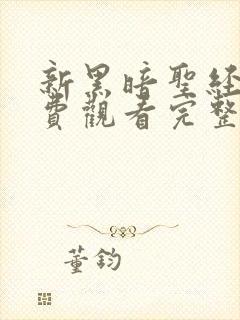 新黑暗聖經
費觀看完整
董鈞